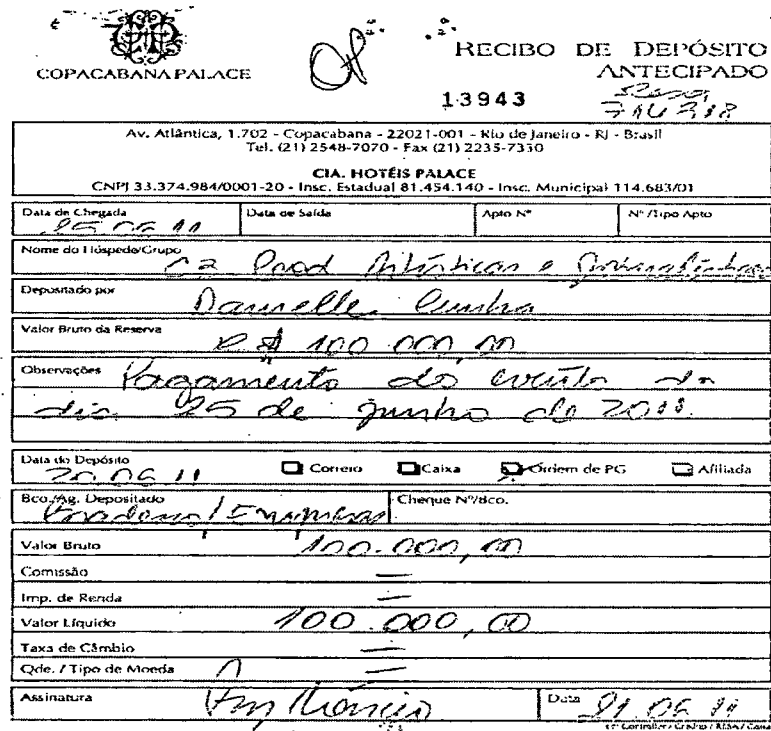 COPACABANA PALACE
RECIBO DE DEPÓSITO
ANTECIPADO
13943
Av. Atlântica, 1.702 - Copacabana - 22021-001 - Rio de Janeiro - RJ - Brasil
Tel. (21) 2548-7070 - Fax (21) 2235-7330
CIA. HOTÉIS PALACE
CNPJ 33.374.984/0001-20 - Insc. Estadual 81.454.140 - Insc. Municipal 114.683/01
Data de Chegada Data de Saída Apto Nº Nº/Tipo Apto
25 06 11
Nome do Hóspede/Grupo C2 Prod Artísticas e
Depositado por Danielle Cunha
Valor Bruto da Reserva R$ 100.000,00
Observações Pagamento do evento do
dia 25 de junho de 2011.
Data do Depósito 20.06.11 Correio Caixa Ordem de PG Afiliada
Bco./Ag. Depositado Cheque Nº/Bco.
Valor Bruto 100.000,00
Comissão —
Imp. de Renda —
Valor Líquido 100.000,00
Taxa de Câmbio —
Qde. / Tipo de Moeda —
Assinatura Data 21.06.11